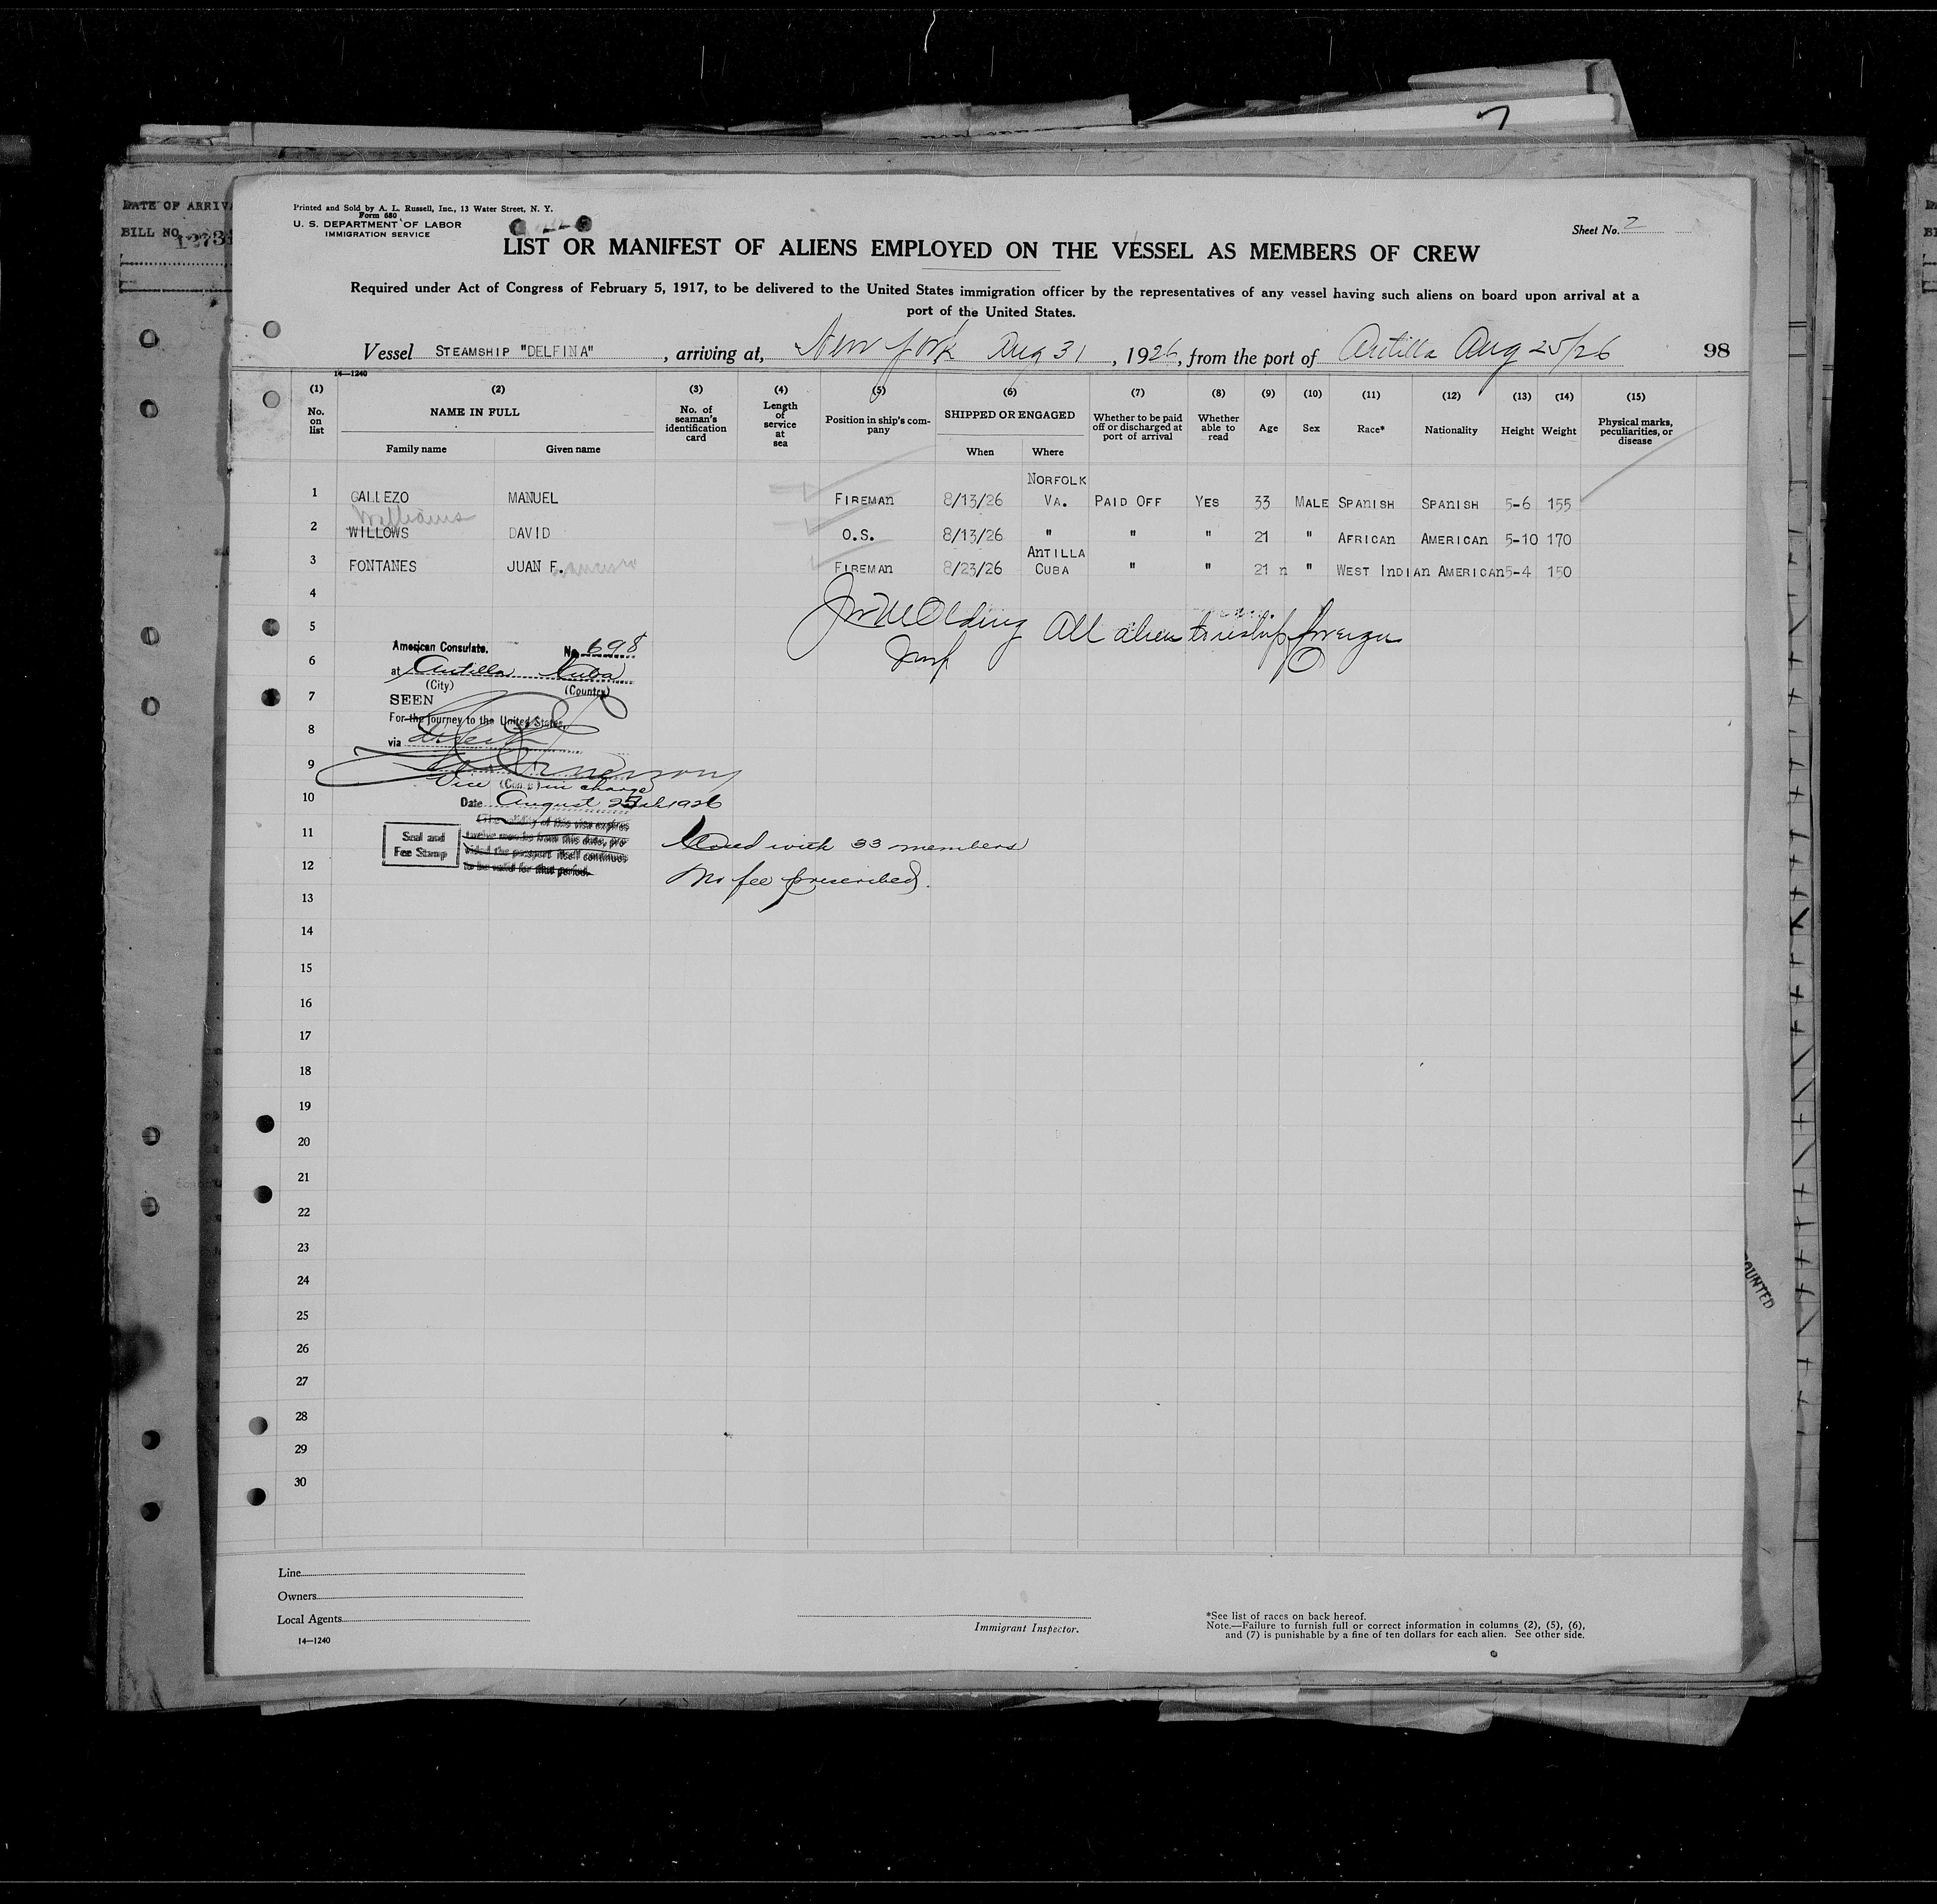 7
DATE OF ARRIVA
BILL NO.
Printed and Sold by A. L. Russell, Inc., 13 Water Street, N. Y.
Form 680
U. S. DEPARTMENT OF LABOR
IMMIGRATION SERVICE
Sheet No. 2
LIST OR MANIFEST OF ALIENS EMPLOYED ON THE VESSEL AS MEMBERS OF CREW
Required under Act of Congress of February 5, 1917, to be delivered to the United States immigration officer by the representatives of any vessel having such aliens on board upon arrival at a
port of the United States.
Vessel STEAMSHIP "DELFINA", arriving at, New York Aug 31, 1926, from the port of Antilla Aug 25/26 98
14—1240
(1) (2) (3) (4) (5) (6) (7) (8) (9) (10) (11) (12) (13) (14) (15)
No. on list NAME IN FULL No. of seaman's identification card Length of service at sea Position in ship's company SHIPPED OR ENGAGED Whether to be paid off or discharged at port of arrival Whether able to read Age Sex Race* Nationality Height Weight Physical marks, peculiarities, or disease
Family name Given name When Where
NORFOLK
1 GALLEZO MANUEL FIREMAN 8/13/26 VA. PAID OFF YES 33 MALE SPANISH SPANISH 5-6 155
Williams
2 WILLOWS DAVID O.S. 8/13/26 " " " 21 " AFRICAN AMERICAN 5-10 170
ANTILLA
3 FONTANES JUAN F. FIREMAN 8/23/26 CUBA " " 21 n " WEST INDIAN AMERICAN 5-4 150
4
5 All alien to reship foreign
American Consulate. No. 698
6
at Antilla Cuba
(City) (Country)
7
SEEN
For the journey to the United States,
8
via
9
Vice (Consul) in charge
10
Date August 25th 1926
(The validity of this visa expires
11
Seal and Fee Stamp
twelve months from this date, pro-
vided the passport itself continues
to be valid for that period.
with 33 members
12
No fee prescribed.
13
14
15
16
17
18
19
20
21
22
23
24
25
26
27
28
29
30
OUNTED
Line
Owners
Local Agents
14—1240
Immigrant Inspector.
*See list of races on back hereof.
Note.—Failure to furnish full or correct information in columns (2), (5), (6),
and (7) is punishable by a fine of ten dollars for each alien. See other side.